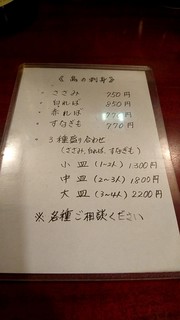 鳥の刺身
・ささみ 750円
・白れば 850円
・赤れば 770円
・すなぎも 770円
・3種盛り合わせ
(ささみ,白れば,すなぎも)
小皿 (1~2人) 1300円
中皿 (2~3人) 1800円
大皿 (3~4人) 2200円
※各種ご相談ください